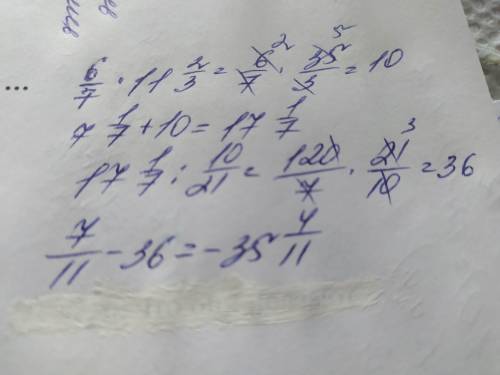 6/7 · 11 2/3 = 6/7 · 35/3 = 10
7 1/7 + 10 = 17 1/7
17 1/7 : 10/21 = 120/7 · 21/10 = 36
7/11 - 36 = -35 4/11